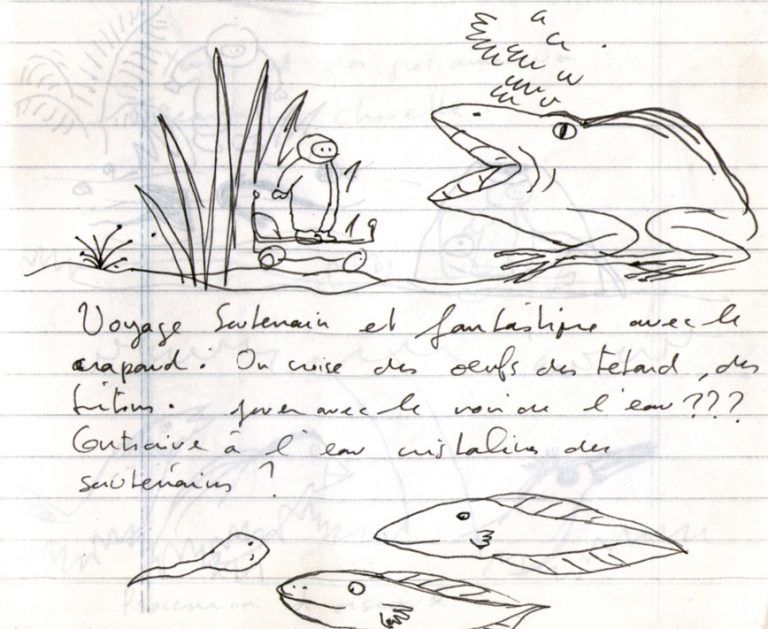 Voyage Souterrain et fantastique avec le
crapaud. On croise des oeufs des tétard, des
tritons. jouer avec le noir de l'eau ???
Contraire à l'eau cristaline des
souterrains ?